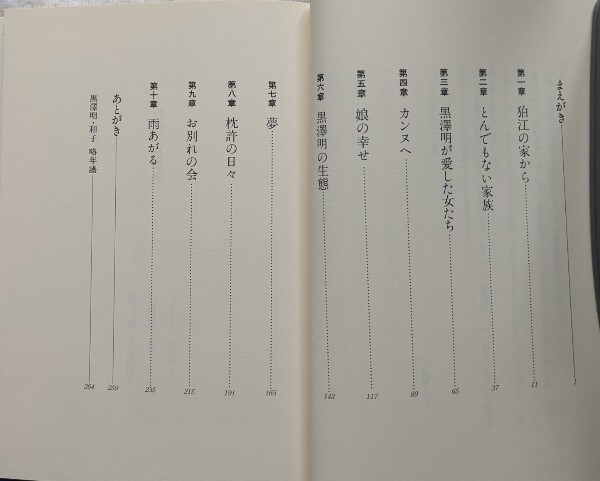 まえがき 1
第一章 狛江の家から 11
第二章 とんでもない家族 37
第三章 黒澤明が愛した女たち 65
第四章 カンヌへ 89
第五章 娘の幸せ 117
第六章 黒澤明の生態 143
第七章 夢 165
第八章 枕許の日々 191
第九章 お別れの会 215
第十章 雨あがる 235
あとがき 259
黒澤明・和子 略年譜 264